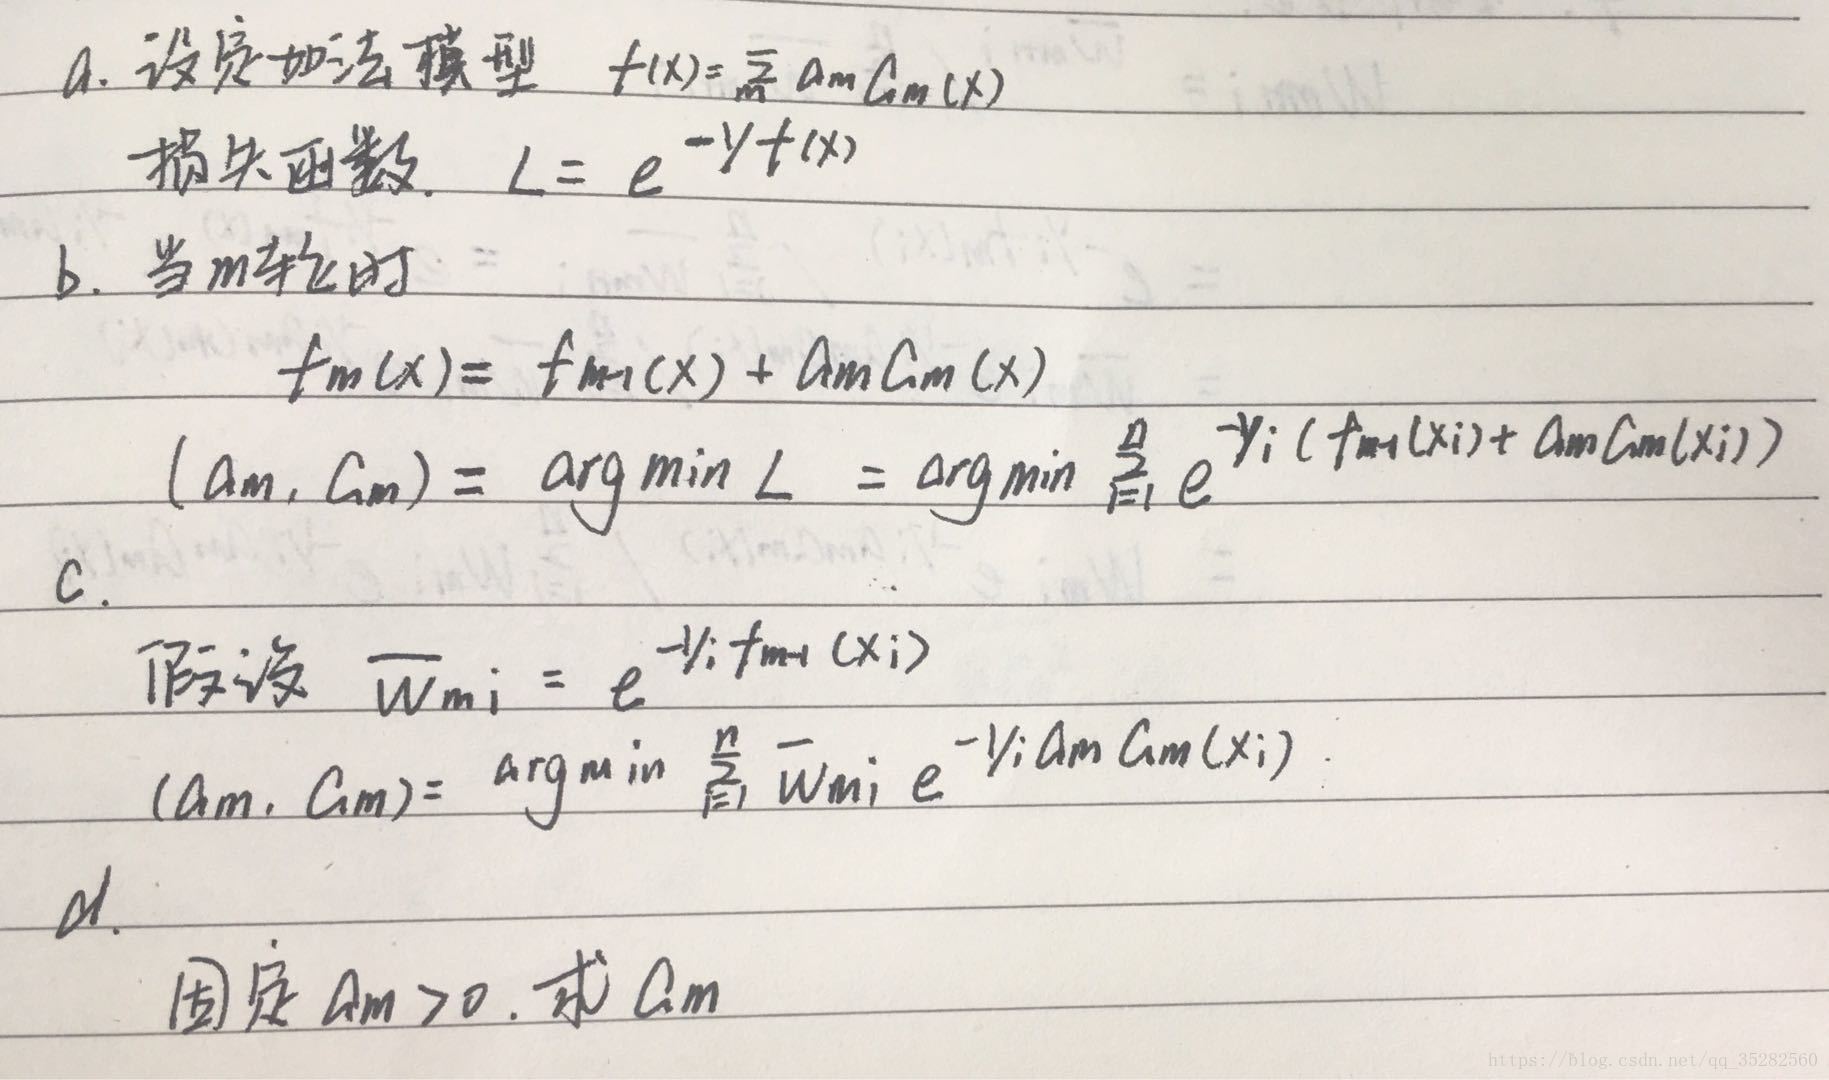 a. 设定加法模型 f(x)=∑_m a_m G_m(x)
损失函数. L = e^{-y f(x)}
b. 当m轮时
f_m(x) = f_{m-1}(x) + a_m G_m(x)
(a_m, G_m) = arg min L = arg min ∑_{i=1}^{n} e^{-y_i(f_{m-1}(x_i) + a_m G_m(x_i))}
c.
假设 \overline{W}_{mi} = e^{-y_i f_{m-1}(x_i)}
(a_m, G_m) = arg min ∑_{i=1}^{n} \overline{W}_{mi} e^{-y_i a_m G_m(x_i)}.
d.
固定 a_m > 0. 求 G_m
https://blog.csdn.net/qq_35282560